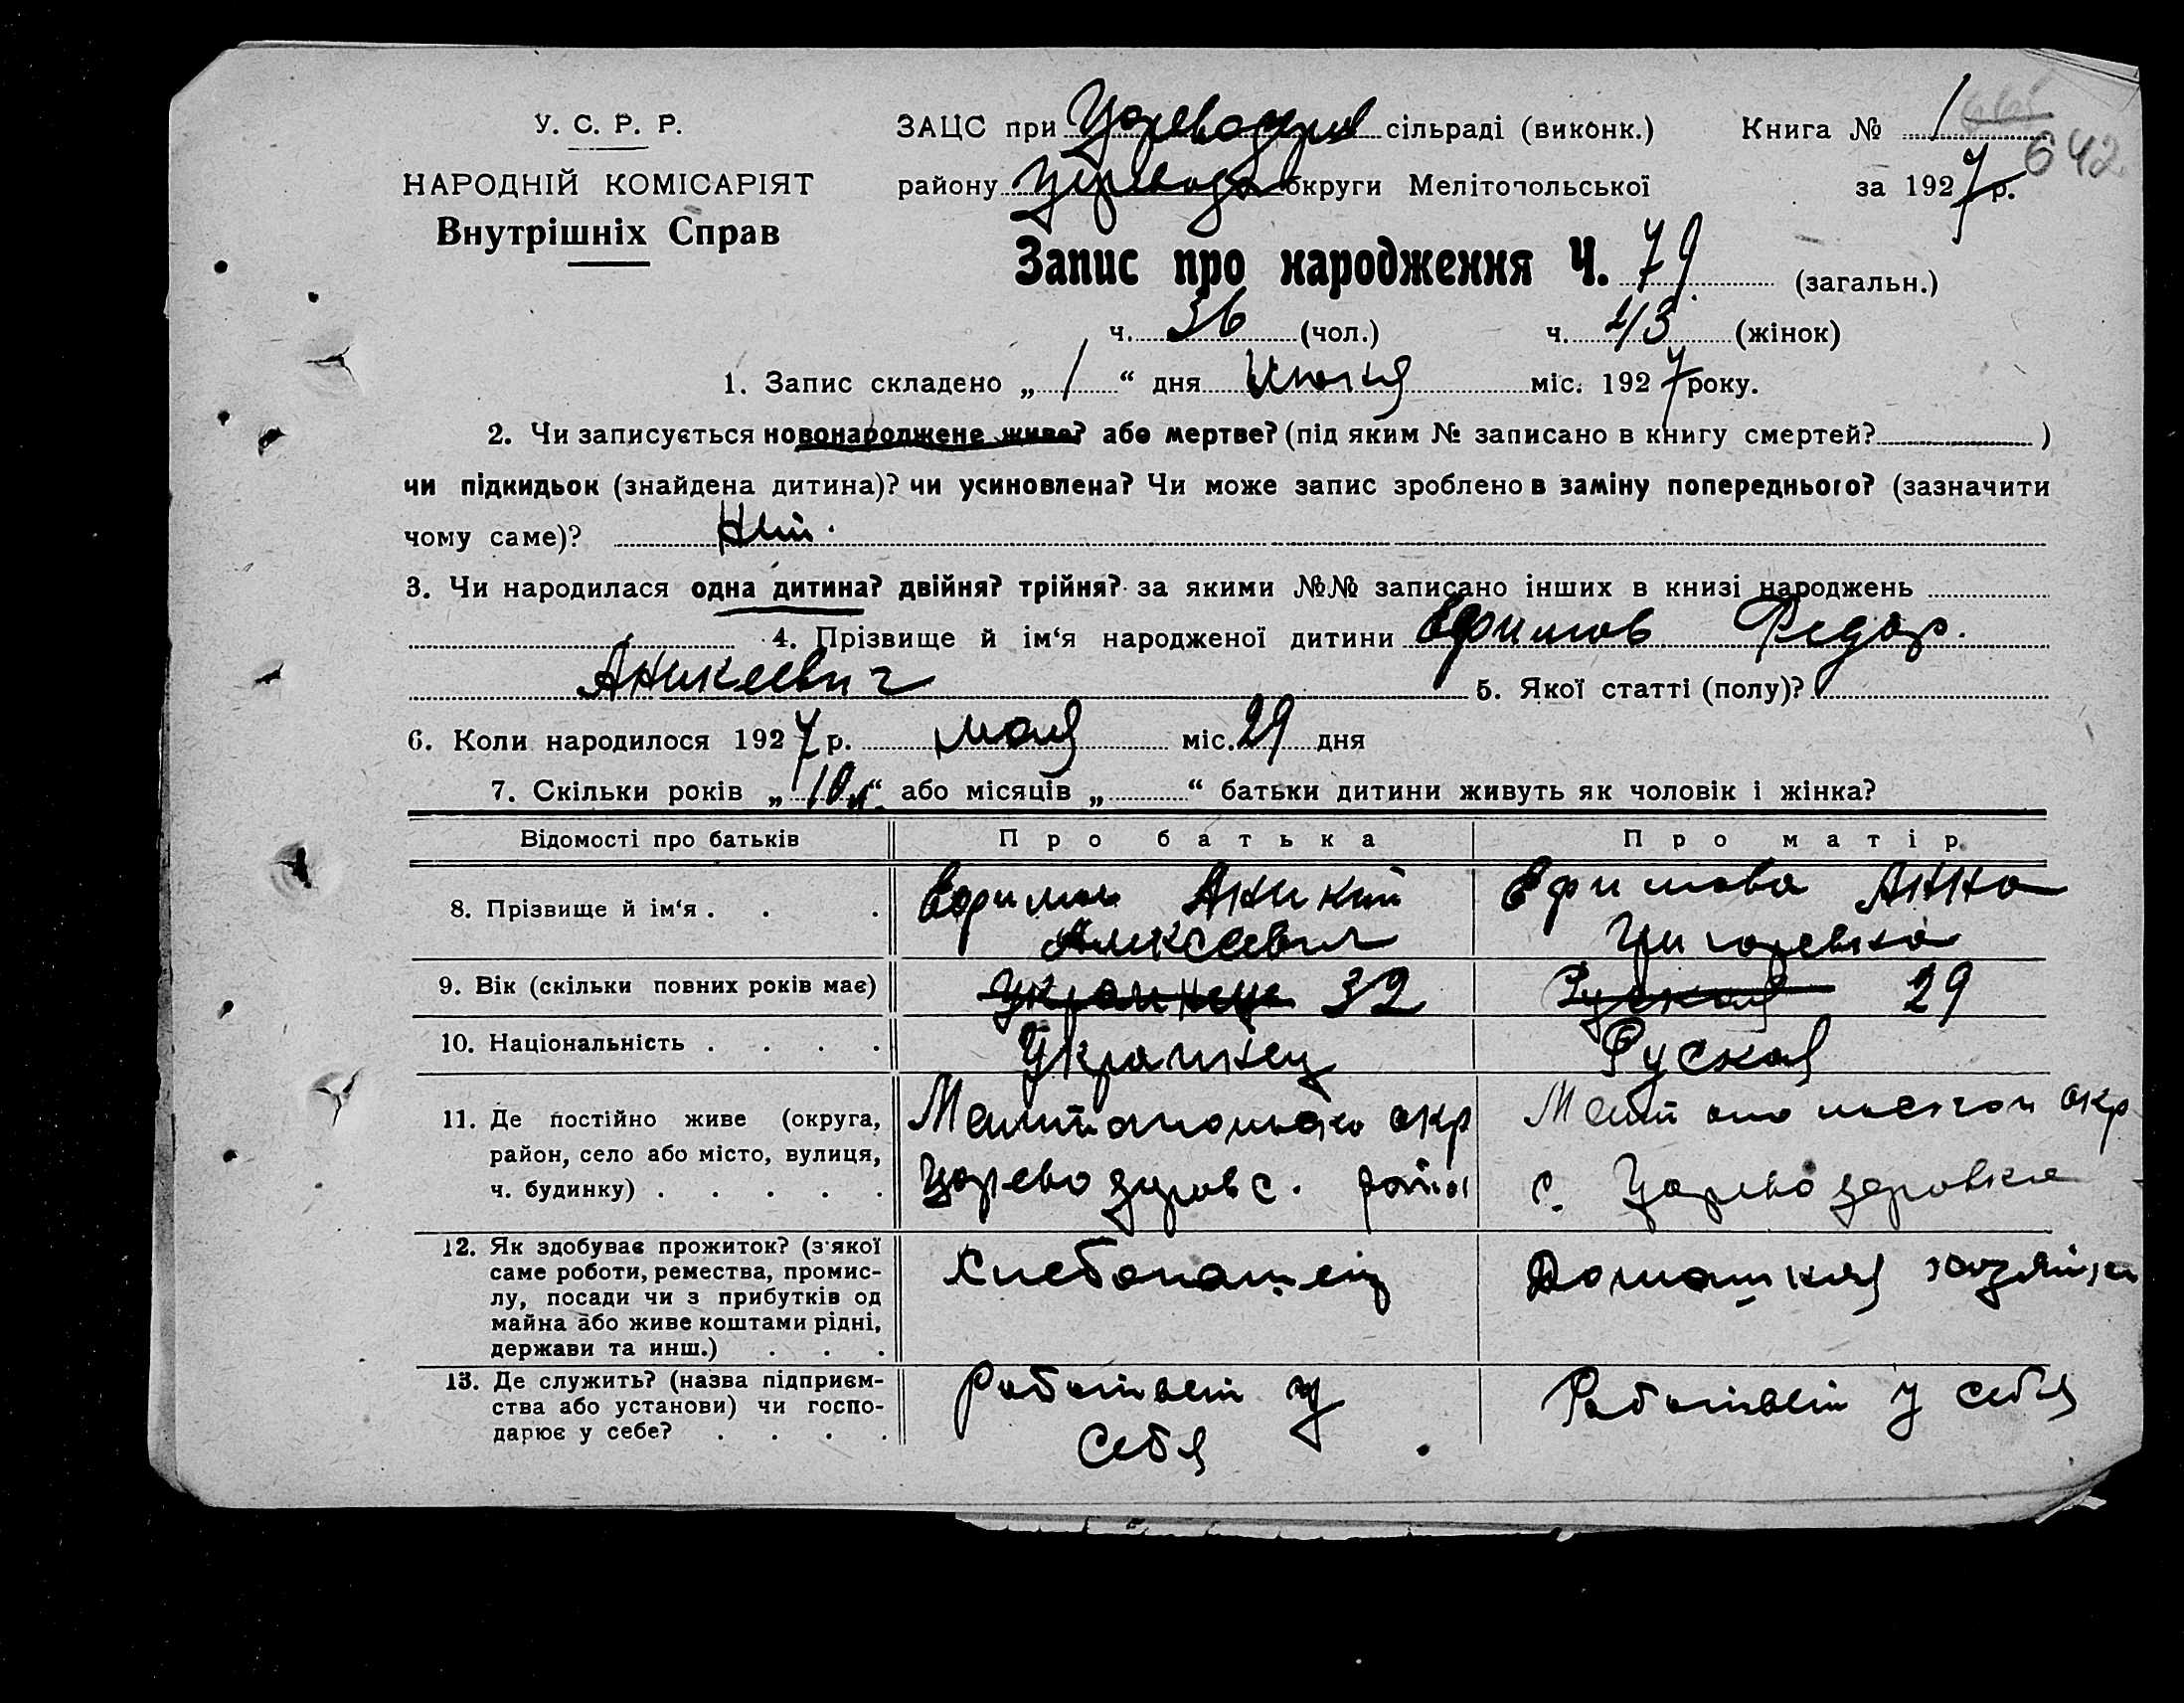 У. С. Р. Р.
НАРОДНІЙ КОМІСАРІЯТ
Внутрішніх Справ
ЗАЦС при Цареводаров сільраді (виконк.) Книга № 1
642
району округи Мелітопольської за 1927 р.
Запис про народження Ч. 79 (загальн.)
ч. 36 (чол.) ч. 43 (жінок)
1. Запис складено „ 1 “ дня Июня міс. 1927 року.
2. Чи записується новонароджене живе? або мертве? (під яким № записано в книгу смертей? )
чи підкидьок (знайдена дитина)? чи усиновлена? Чи може запис зроблено в заміну попереднього? (зазначити
чому саме)?
3. Чи народилася одна дитина? двійня? трійня? за якими №№ записано інших в книзі народжень
4. Прізвище й ім‘я народженої дитини Ефимов Федор
Аникеевич 5. Якої статті (полу)?
6. Коли народилося 1927 р. мая міс. 29 дня
7. Скільки років „ 10 л “ або місяців „ “ батьки дитини живуть як чоловік і жінка?
Відомості про батьків Про батька Про матір
8. Прізвище й ім‘я . . . Ефимов Аникий Ефимова Анна
Алексеевич Григоревна
9. Вік (скільки повних років має) Украинец 32 Руская 29
10. Національність . . . . Украинец Руская
11. Де постійно живе (округа, Мелитопольско окр Мелитопольской окр
район, село або місто, вулиця,
ч. будинку) . . . . . Цареводаров с. район с. Цареводаровка
12. Як здобуває прожиток? (з якої Хлебопашец Домашняя хозяйка
саме роботи, ремества, промис-
лу, посади чи з прибутків од
майна або живе коштами рідні,
держави та инш.) . . .
13. Де служить? (назва підприєм- Работает у Работает у себя
ства або установи) чи госпо- себя
дарює у себе? . . . .